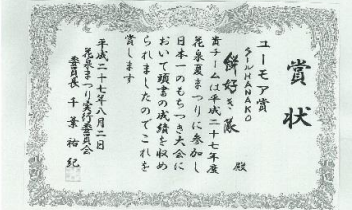 賞状
ユーモア賞
ちームHANAKO
餅好き隊 殿
貴チームは平成二十七年度
花泉夏まつりに参加し
日本一のもちつき大会に
おいて頭書の成績を収め
られましたのでこれを
賞します
平成二十七年八月二日
花泉まつり実行委員会
委員長 千葉祐紀